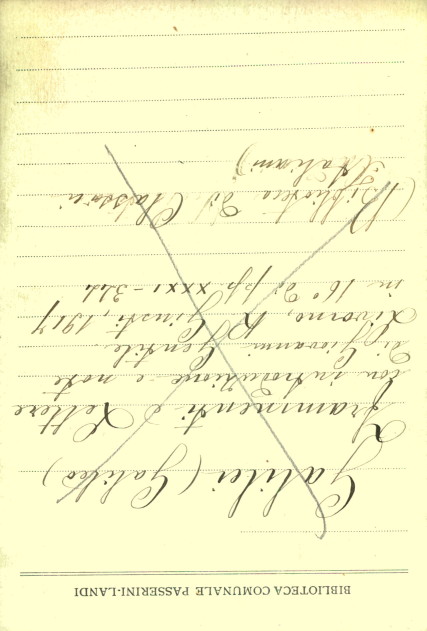 BIBLIOTECA COMUNALE PASSERINI-LANDI
Galilei (Galileo)
Frammenti e Lettere
con introduzione e note
di Giovanni Gentile.
Livorno, R. Giusti, 1917
in 16° di pp. XXXI-344
(Biblioteca di Classici
Italiani)